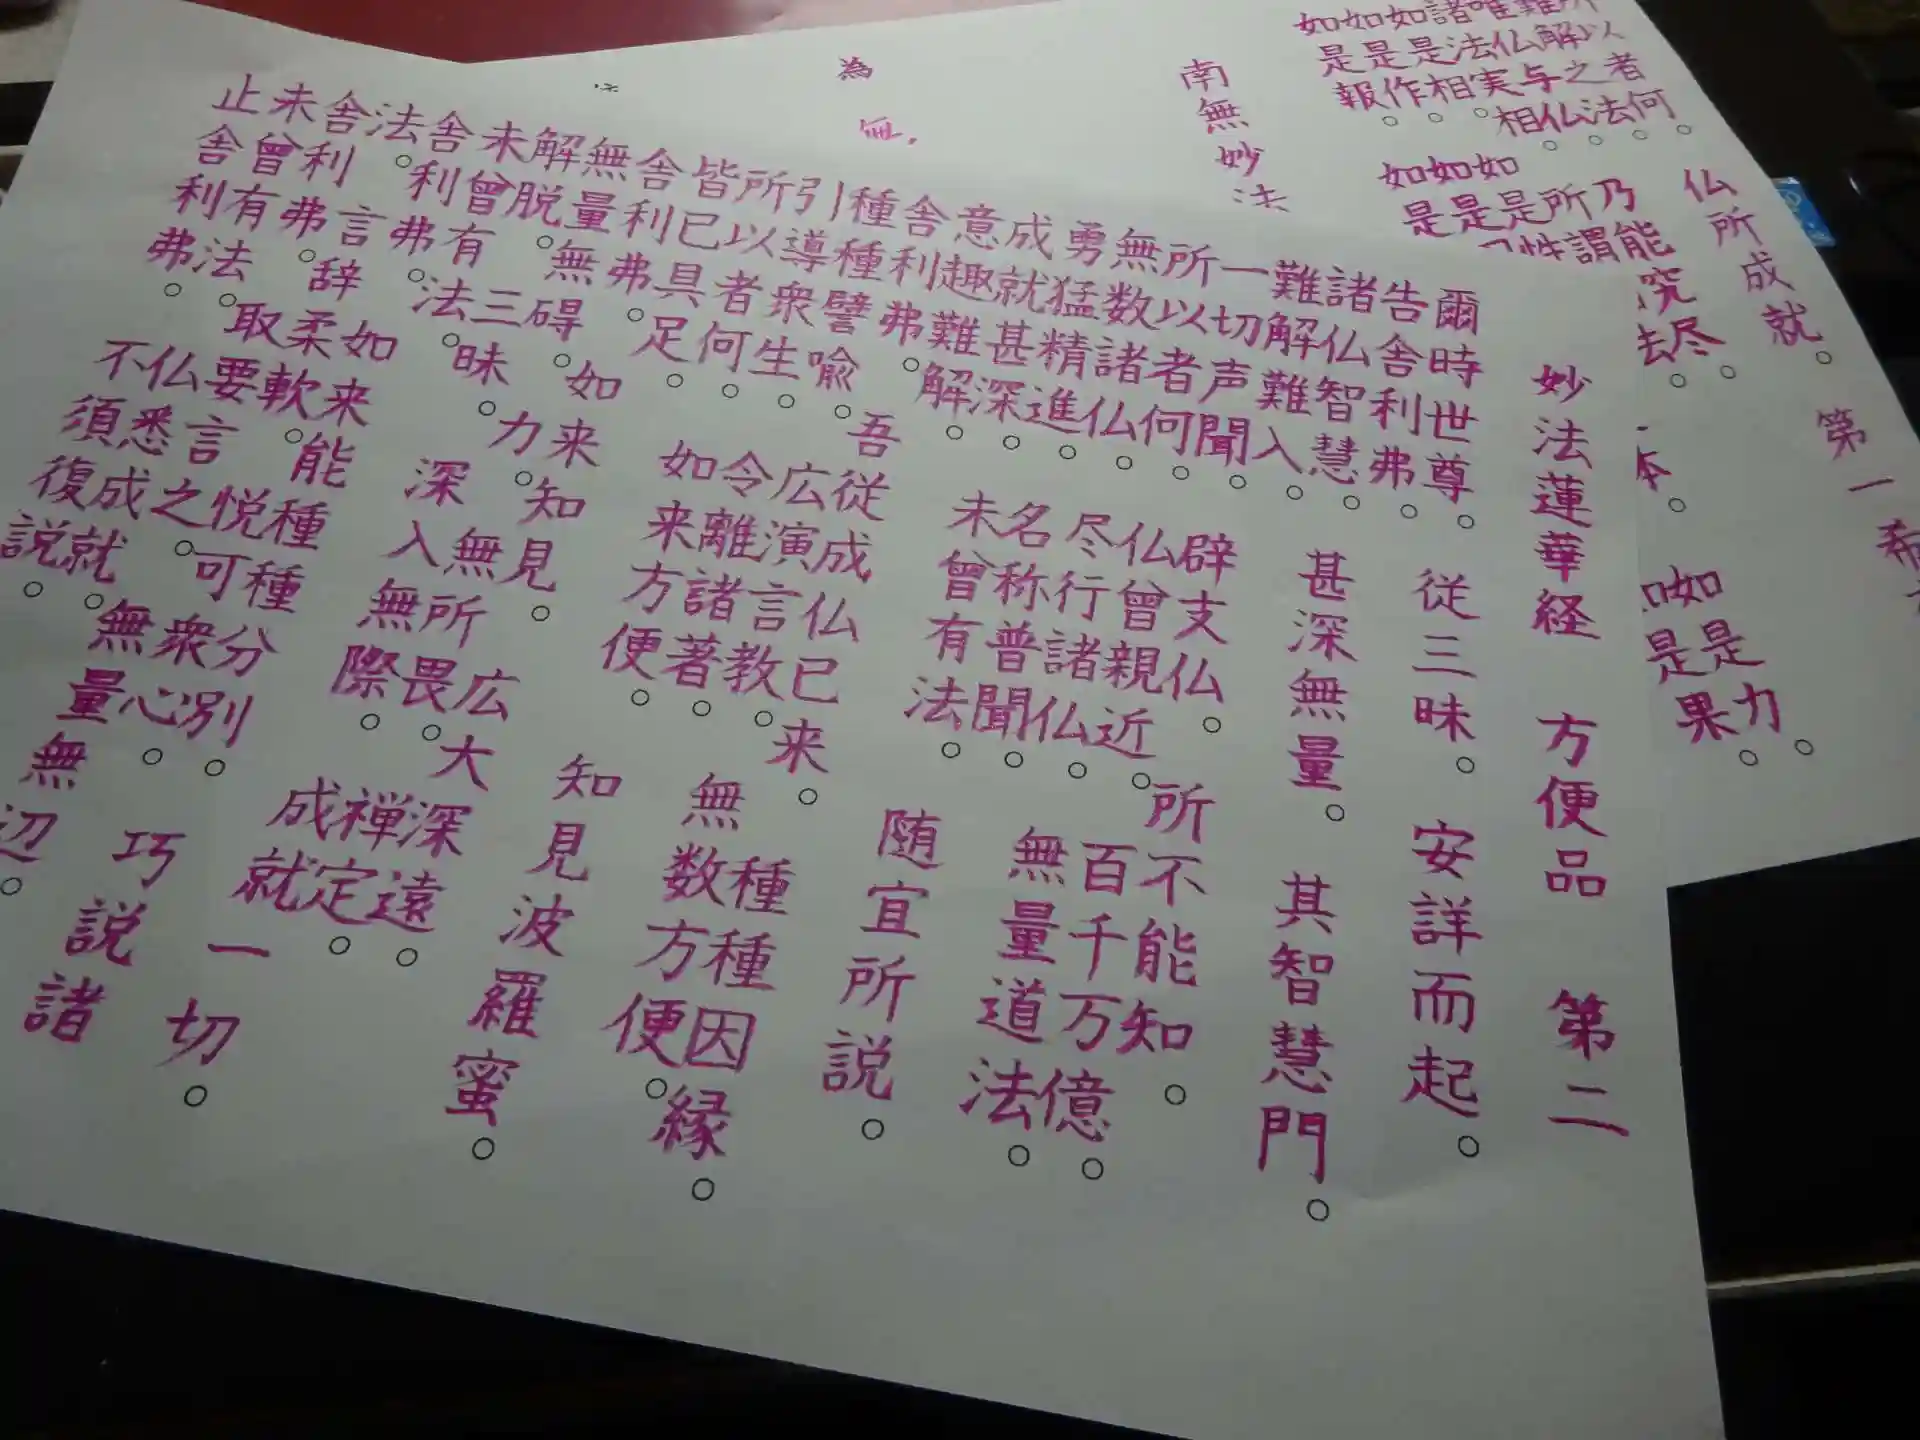 所以者何。仏所成就。第一希
難解之法。
唯仏与仏。乃能究尽。
諸法実相。所謂
如是相。如是性 如是力。
如是作。如是 如是果
如是報。如是
南無妙法
為
無
妙法蓮華経 方便品 第二
爾時世尊。従三昧。安詳而起。
告舎利弗。
諸仏智慧。甚深無量。其智慧門。
難解難入。
一切声聞。辟支仏。所不能知。
所以者何。仏曾親近。百千万億。
無数諸仏。尽行諸仏。無量道法。
勇猛精進。名称普聞。
成就甚深。未曾有法。随宜所説。
意趣難解。
舎利弗。吾従成仏已来。種種因縁。
種種譬喩。広演言教。無数方便。
引導衆生。令離諸著。
所以者何。如来方便。知見波羅蜜。
皆已具足。
舎利弗。如来知見。広大深遠。
無量無碍。力無所畏。禅定。
解脱。三昧。深入無際。成就一切。
未曾有法。
舎利弗。如来能種種分別。巧説諸
法。言辞柔軟。悦可衆心。
舎利弗。取要言之。無量無辺。
未曾有法。仏悉成就。
止舎利弗。不須復説。